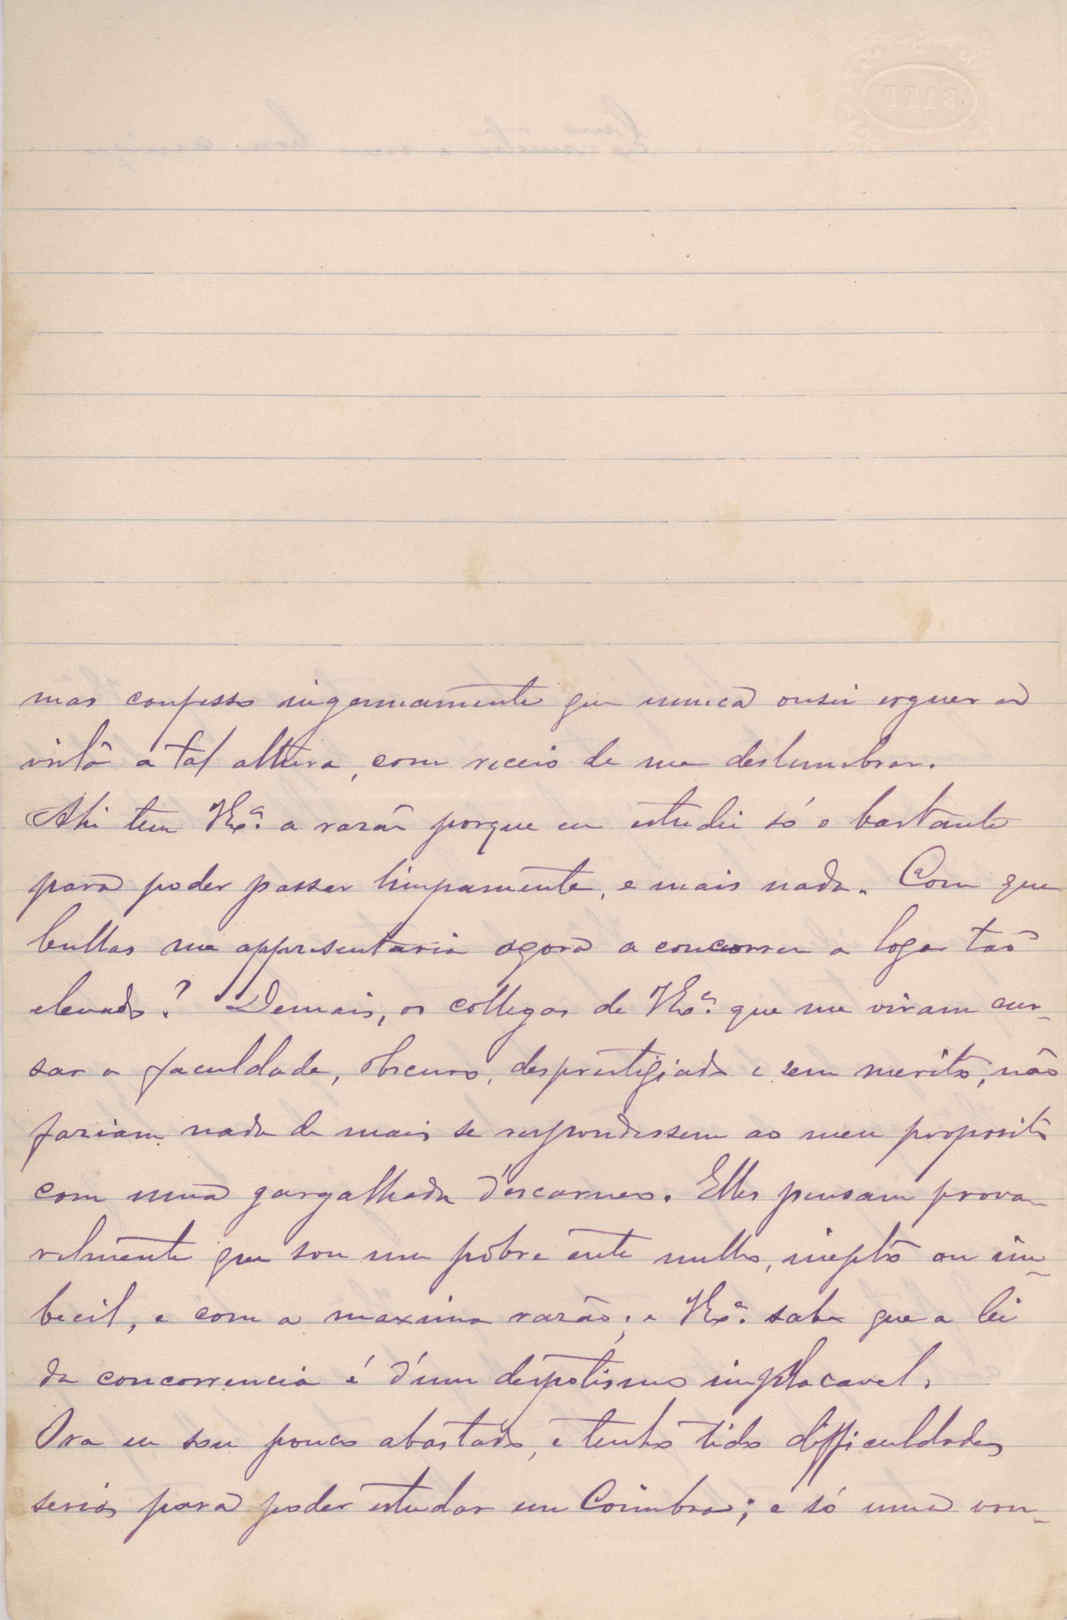 mas confesso ingenuamente que nunca ousei erguer a
vista a tal altura, com receio de me deslumbrar.
Ahi tem V. Ex.ª a razão porque eu estudei só o bastante
para poder passar limpamente, e mais nada. Com que
bullas me appresentaria agora a concorrer a logar tão
elevado? Demais, os collegas de V. Ex.ª que me viram cur-
sar a faculdade, obscuro, desprestigiado e sem merito, não
fariam nada de mais se respondessem ao meu proposito
com uma gargalhada d'escarneo. Elles pensam prova-
velmente que sou um pobre ente nullo, inepto ou im-
becil, e com a maxima razão; e V. Ex.ª sabe que a lei
da concorrencia é d'um despotismo implacavel.
Ora eu sou pouco abastado, e tenho tido difficuldades
serias para poder estudar em Coimbra; e só uma von-